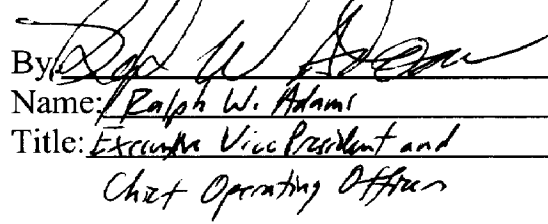 By: Ralph W Adams
Name: Ralph W. Adams
Title: Executive Vice President and
Chief Operating Officer